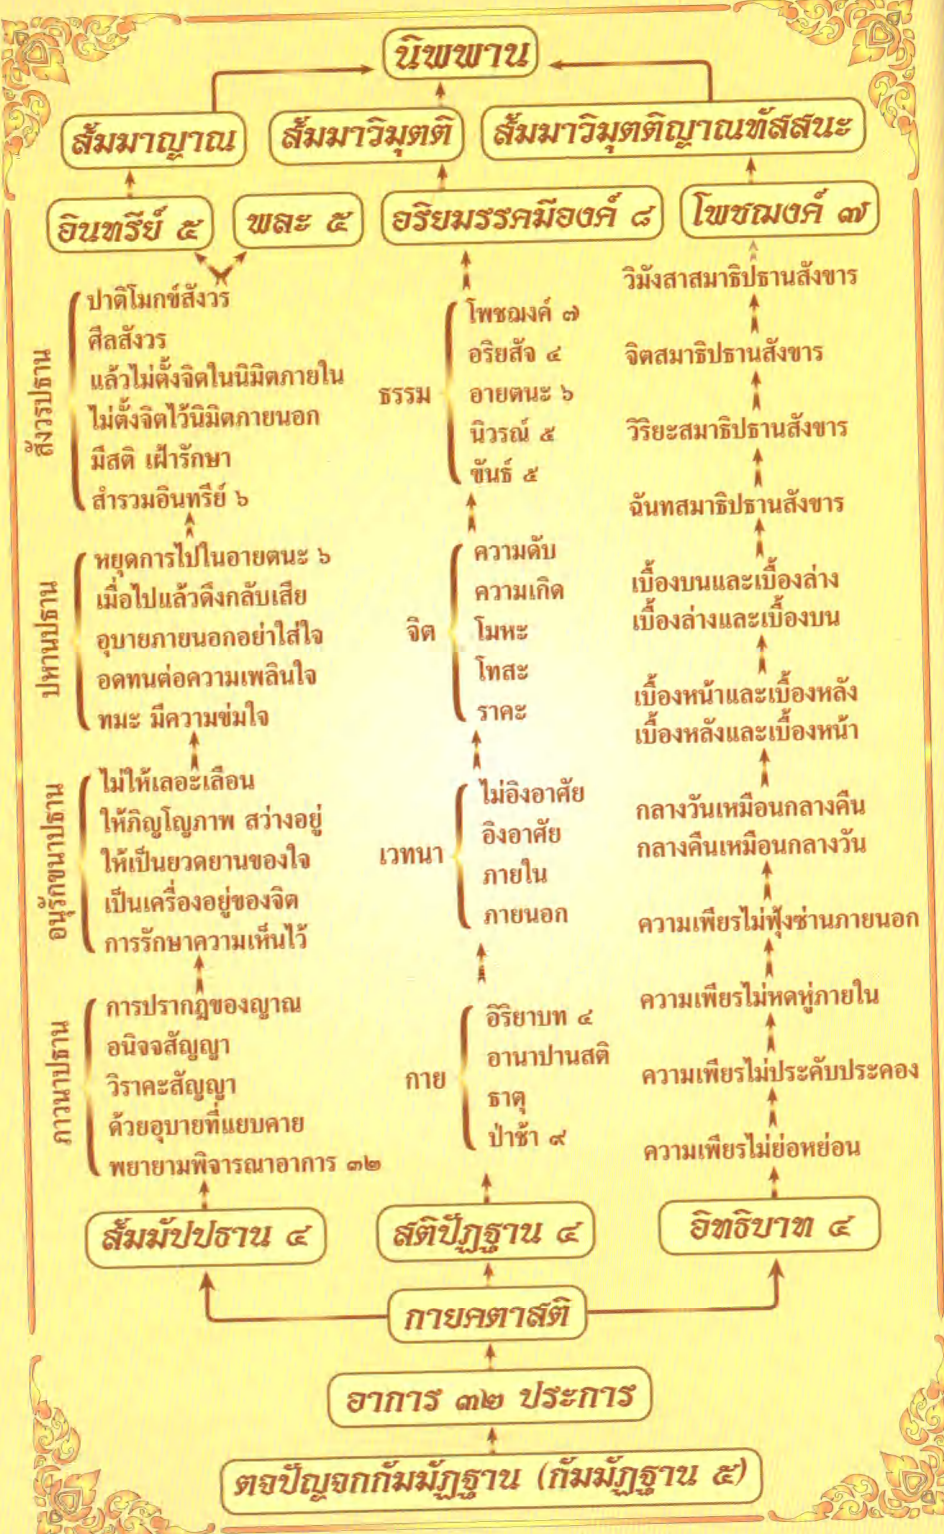 นิพพาน
สัมมาญาณ
สัมมาวิมุตติ
สัมมาวิมุตติญาณทัสสนะ
อินทรีย์ ๕
พละ ๕
อริยมรรคมีองค์ ๘
โพชฌงค์ ๗
สังวรปธาน
ปาติโมกข์สังวร
ศีลสังวร
แล้วไม่ตั้งจิตในนิมิตภายใน
ไม่ตั้งจิตไว้นิมิตภายนอก
มีสติ เฝ้ารักษา
สำรวมอินทรีย์ ๖
ปหานปธาน
หยุดการไปในอายตนะ ๖
เมื่อไปแล้วดึงกลับเสีย
อุบายภายนอกอย่าใส่ใจ
อดทนต่อความเพลินใจ
ทมะ มีความข่มใจ
อนุรักขนาปธาน
ไม่ให้เลอะเลือน
ให้ภิญโญภาพ สว่างอยู่
ให้เป็นยวดยานของใจ
เป็นเครื่องอยู่ของจิต
การรักษาความเห็นไว้
ภาวนาปธาน
การปรากฏของญาณ
อนิจจสัญญา
วิราคะสัญญา
ด้วยอุบายที่แยบคาย
พยายามพิจารณาอาการ ๓๒
สัมมัปปธาน ๔
ธรรม
โพชฌงค์ ๗
อริยสัจ ๔
อายตนะ ๖
นิวรณ์ ๕
ขันธ์ ๕
จิต
ความดับ
ความเกิด
โมหะ
โทสะ
ราคะ
เวทนา
ไม่อิงอาศัย
อิงอาศัย
ภายใน
ภายนอก
กาย
อิริยาบท ๔
อานาปานสติ
ธาตุ
ป่าช้า ๙
สติปัฏฐาน ๔
วิมังสาสมาธิปธานสังขาร
จิตสมาธิปธานสังขาร
วิริยะสมาธิปธานสังขาร
ฉันทสมาธิปธานสังขาร
เบื้องบนและเบื้องล่าง
เบื้องล่างและเบื้องบน
เบื้องหน้าและเบื้องหลัง
เบื้องหลังและเบื้องหน้า
กลางวันเหมือนกลางคืน
กลางคืนเหมือนกลางวัน
ความเพียรไม่ฟุ้งซ่านภายนอก
ความเพียรไม่หดหู่ภายใน
ความเพียรไม่ประคับประคอง
ความเพียรไม่ย่อหย่อน
อิทธิบาท ๔
กายคตาสติ
อาการ ๓๒ ประการ
ตจปัญจกกัมมัฏฐาน (กัมมัฏฐาน ๕)